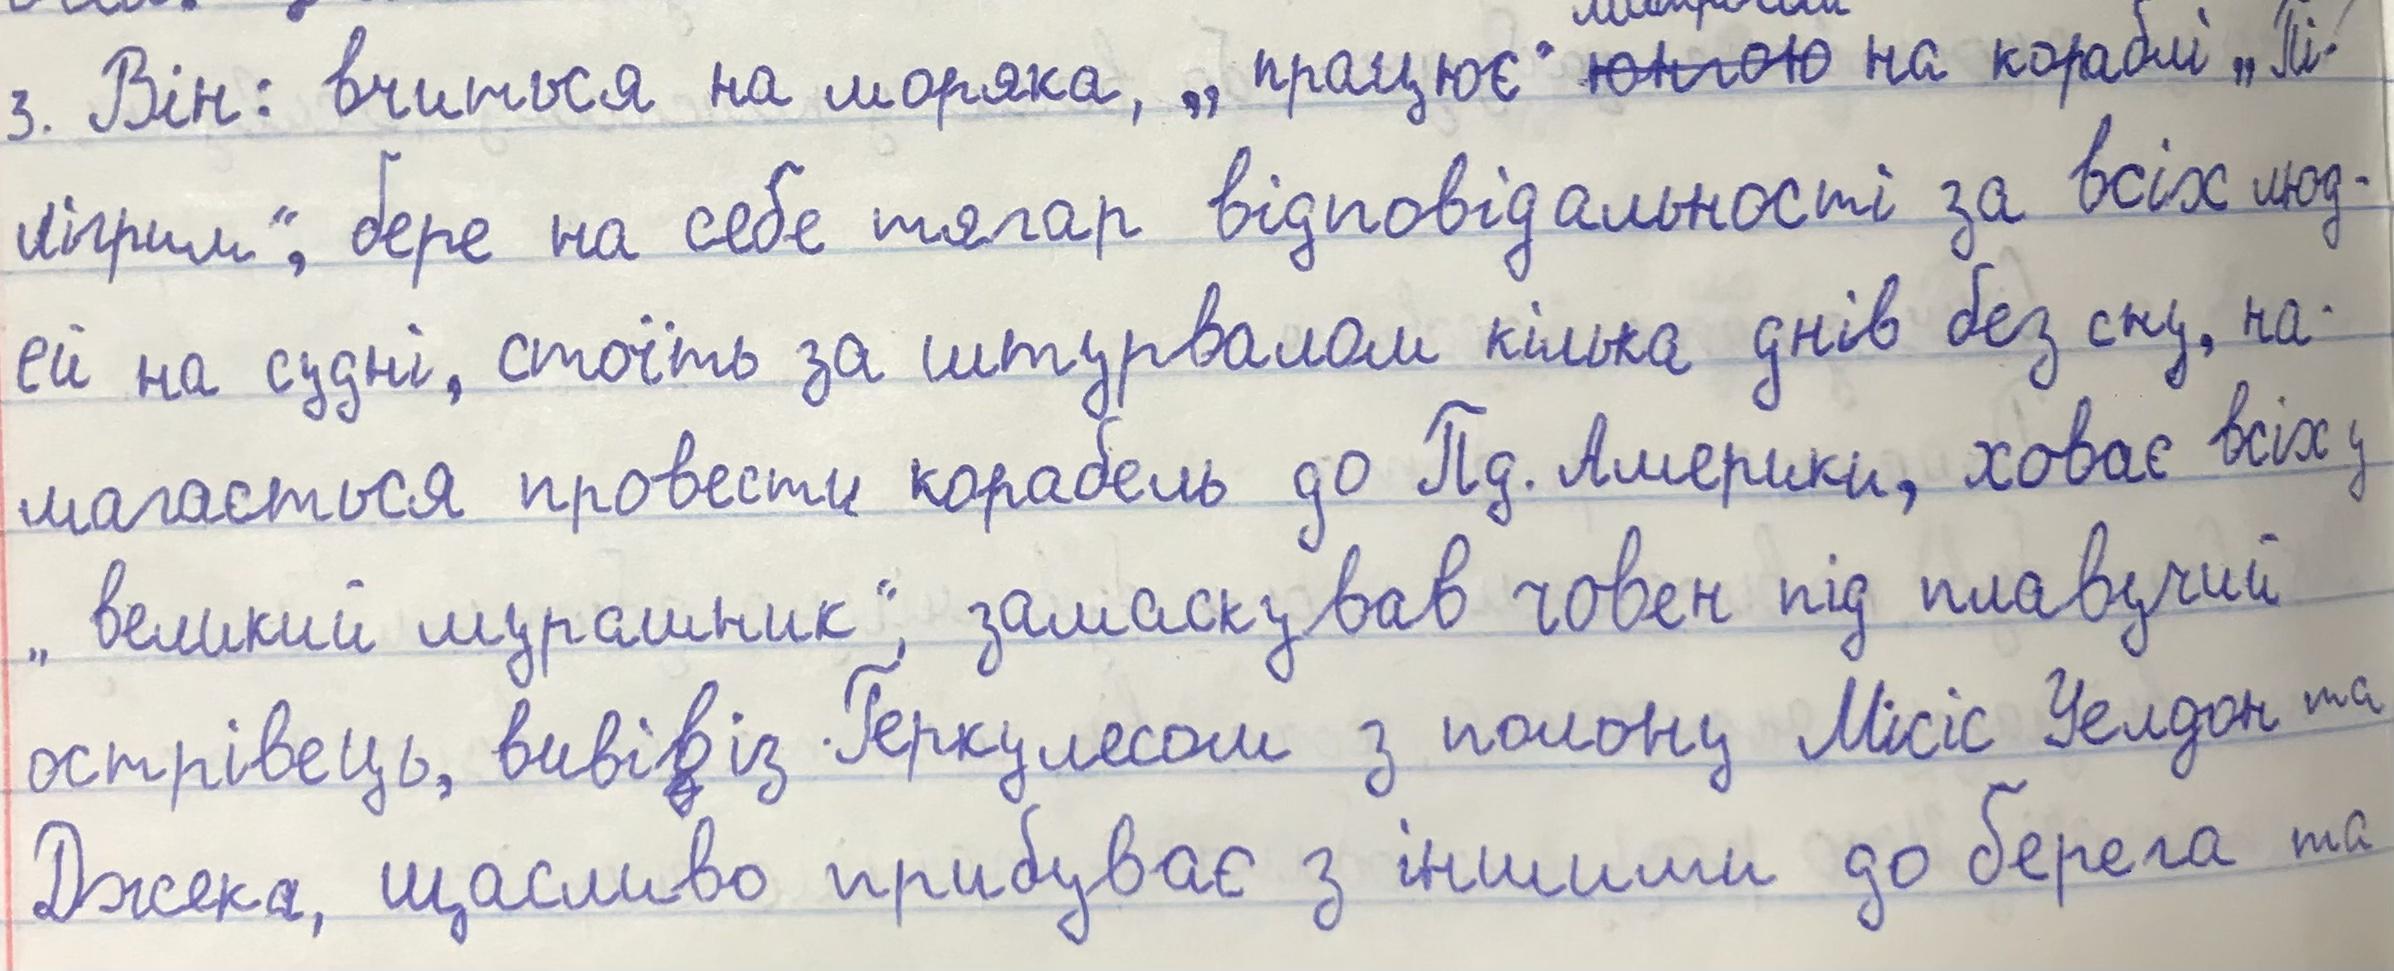 матросом
3. Він: вчиться на моряка, „працює“ юнгою на кораблі „Пі-
лігрим“, бере на себе тягар відповідальності за всіх люд-
ей на судні, стоїть за штурвалом кілька днів без сну, на-
магається провести корабель до Пд. Америки, ховає всіх у
„великий мурашник“, замаскував човен під плавучий
острівець, вивів із Геркулесом з полону Місіс Уелдон та
Джека, щасливо прибуває з іншими до берега та